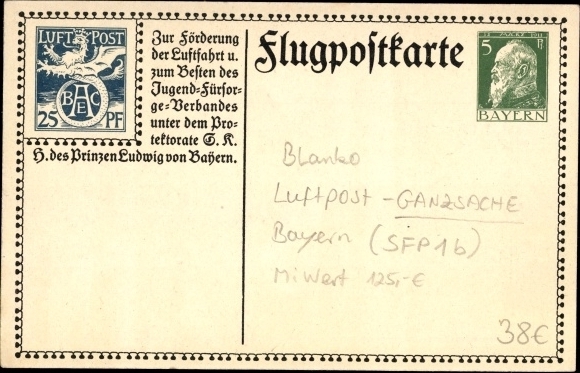 LUFT POST
BAEC
25 PF
Zur Förderung
der Luftfahrt u.
zum Besten des
Jugend-Fürsor-
ge-Verbandes
unter dem Pro-
tektorate S. K.
H. des Prinzen Ludwig von Bayern.
Flugpostkarte
12. MÄRZ 1911
5 Pf
BAYERN
Blanko
Luftpost - GANZSACHE
Bayern (SFP1b)
Mi Wert 125,- €
38€